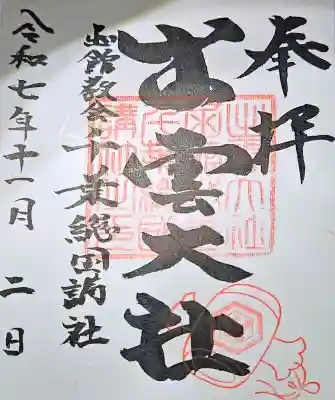 奉拝
出雲大社
出雲教会千葉総国講社
令和七年十一月 二日